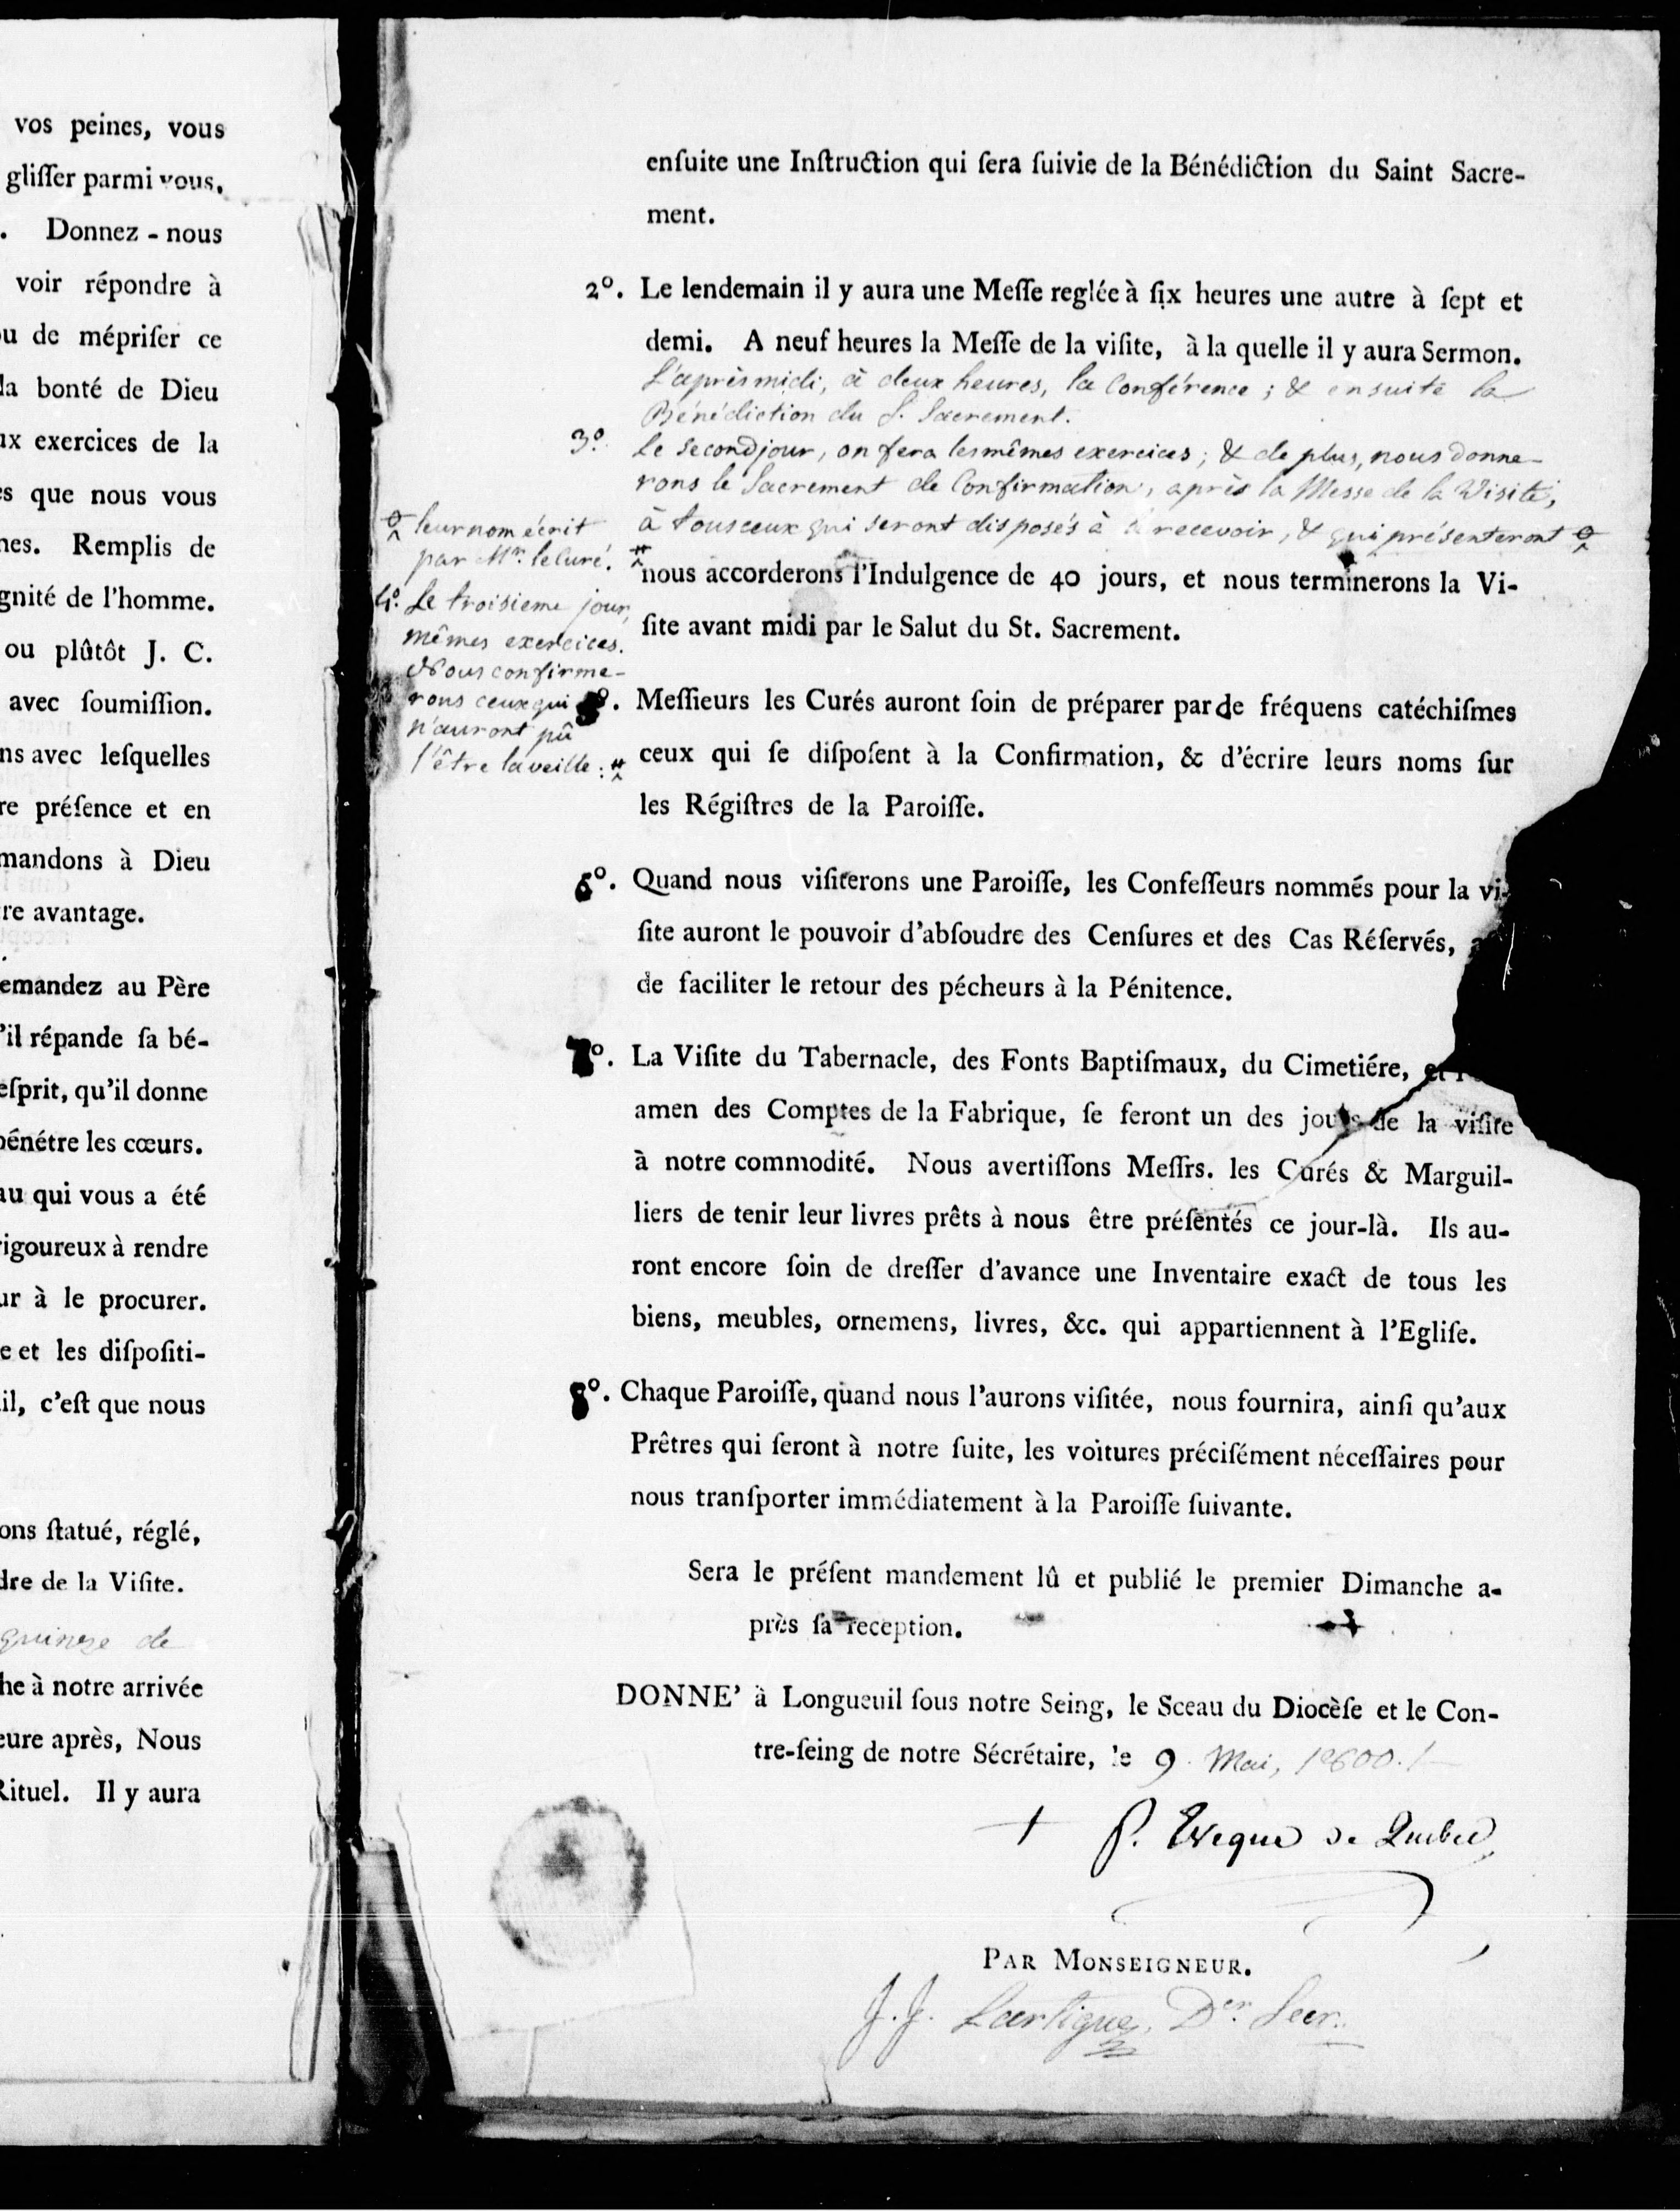 vos peines, vous
gliſſer parmi vous.
. Donnez-nous
voir répondre à
de mépriſer ce
la bonté de Dieu
exercices de la
que nous vous
Remplis de
de l'homme.
ou plûtôt J. C.
avec ſoumiſſion.
avec leſquelles
préſence et en
à Dieu
avantage.
au Père
répande ſa bé-
qu'il donne
les cœurs.
qui vous a été
à rendre
à le procurer.
et les diſpoſiti-
c'eſt que nous
ſtatué, réglé,
de la Viſite.
quinze de
à notre arrivée
après, Nous
Rituel. Il y aura
enſuite une Inſtruction qui ſera ſuivie de la Bénédiction du Saint Sacre-
ment.
2º. Le lendemain il y aura une Meſſe reglée à ſix heures une autre à ſept et
demi. A neuf heures la Meſſe de la viſite, à la quelle il y aura Sermon.
L'après midi, à deux heures, la Conférence ; & ensuite la
Bénédiction du S. Sacrement.
3º. Le second jour, on fera les mêmes exercices ; & de plus, nous donne-
rons le Sacrement de Confirmation, après la Messe de la Visite,
à tous ceux qui seront disposés à recevoir, & qui présenteront
leur nom écrit
par Mr. le Curé.
4º. Le troisieme jour,
mêmes exercices.
Nous confirme-
rons ceux qui
n'auront pû
l'être la veille : #
# nous accorderons l'Indulgence de 40 jours, et nous terminerons la Vi-
ſite avant midi par le Salut du St. Sacrement.
5º. Meſſieurs les Curés auront ſoin de préparer par de fréquens catéchiſmes
ceux qui ſe diſpoſent à la Confirmation, & d'écrire leurs noms ſur
les Régiſtres de la Paroiſſe.
6º. Quand nous viſiterons une Paroiſſe, les Confeſſeurs nommés pour la vi-
ſite auront le pouvoir d'abſoudre des Cenſures et des Cas Réſervés,
de faciliter le retour des pécheurs à la Pénitence.
7º. La Viſite du Tabernacle, des Fonts Baptiſmaux, du Cimetiére, et
amen des Comptes de la Fabrique, ſe feront un des jours de la viſite
à notre commodité. Nous avertiſſons Meſſrs. les Curés & Marguil-
liers de tenir leur livres prêts à nous être préſentés ce jour-là. Ils au-
ront encore ſoin de dreſſer d'avance une Inventaire exact de tous les
biens, meubles, ornemens, livres, &c. qui appartiennent à l'Egliſe.
8º. Chaque Paroiſſe, quand nous l'aurons viſitée, nous fournira, ainſi qu'aux
Prêtres qui ſeront à notre ſuite, les voitures préciſément néceſſaires pour
nous tranſporter immédiatement à la Paroiſſe ſuivante.
Sera le préſent mandement lû et publié le premier Dimanche a-
près ſa reception.
DONNE' à Longueuil ſous notre Seing, le Sceau du Diocèſe et le Con-
tre-ſeing de notre Sécrétaire, le 9. Mai, 1800./.
+ P. Eveque de Quebec
PAR MONSEIGNEUR.
J. J. Lartigue, Der. Secr.